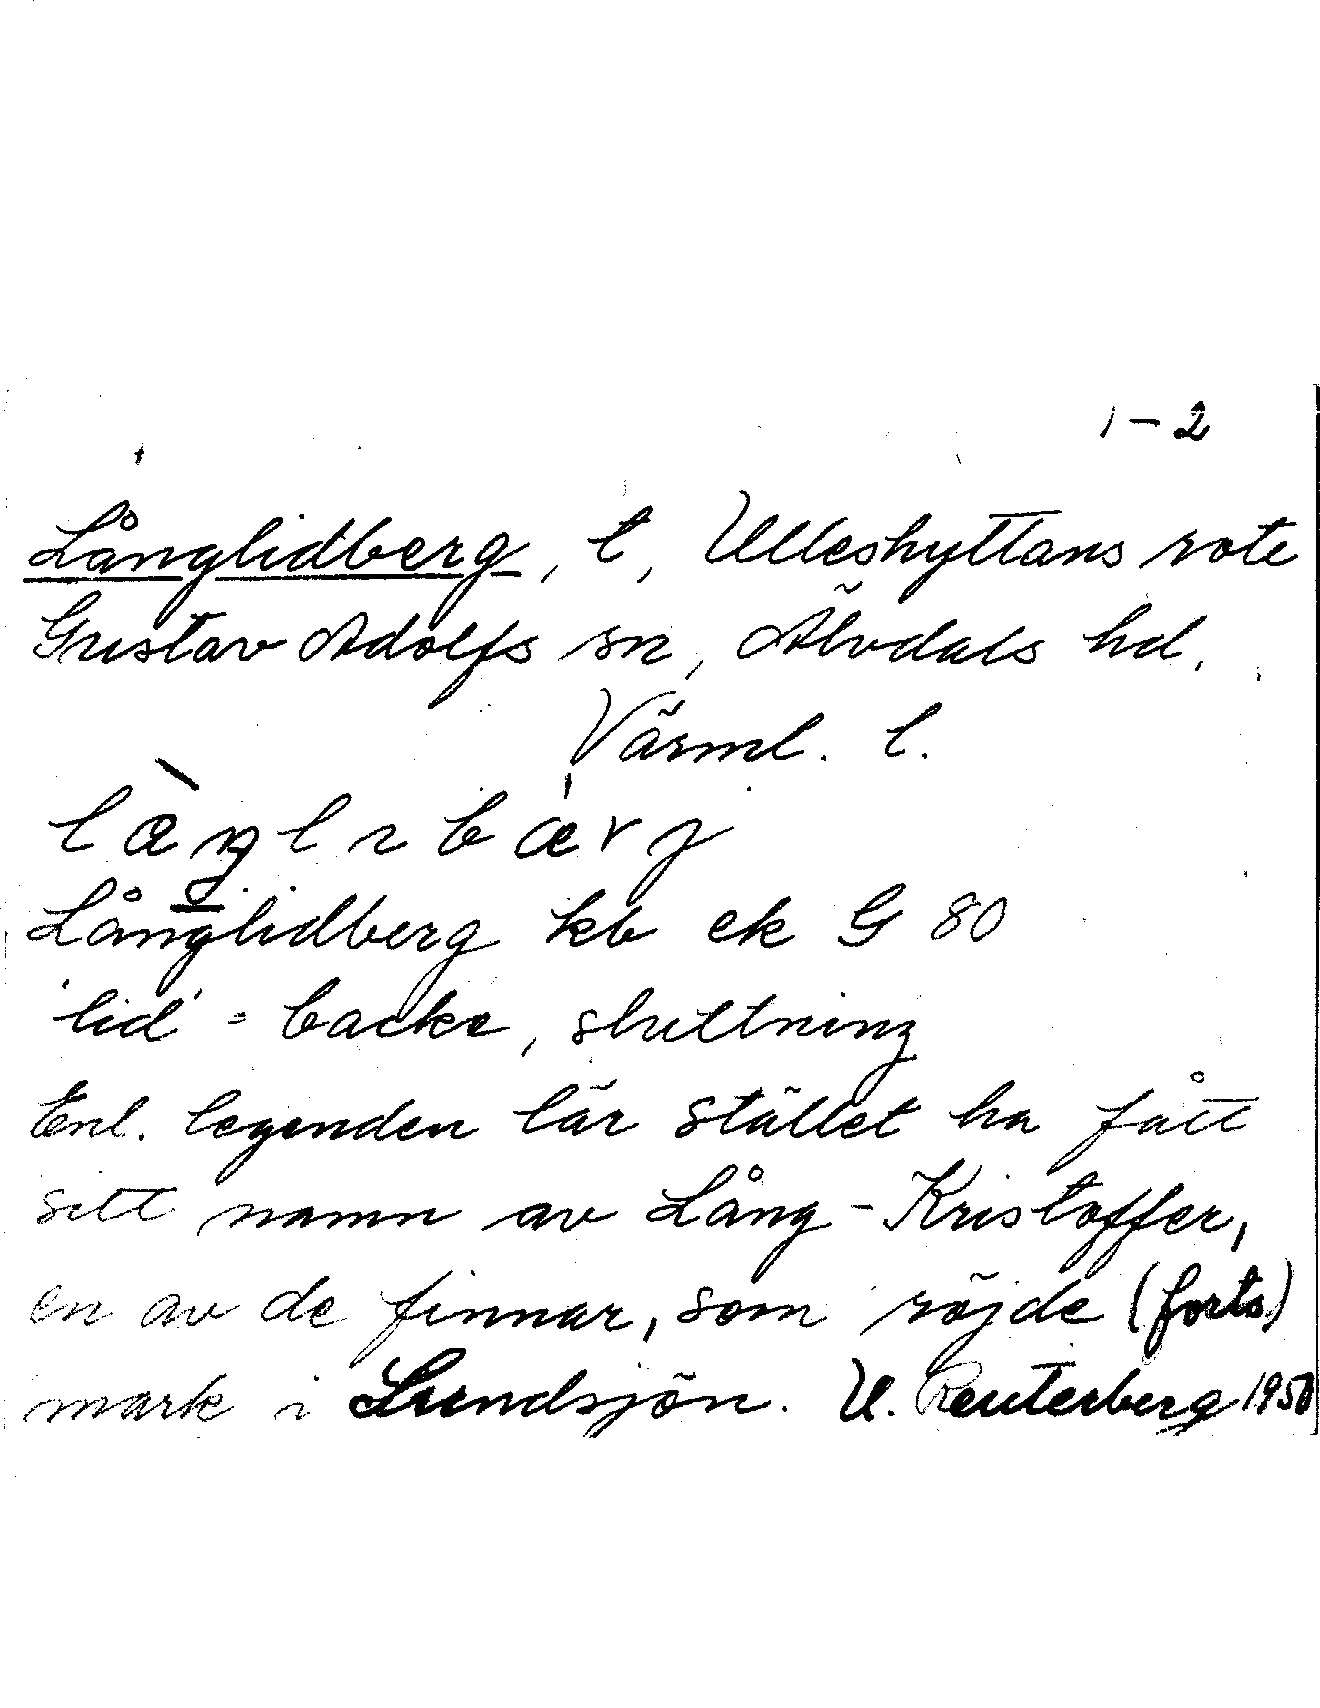 1-2
Långlidberg, t, Ulleshyttans rote
Gustav Adolfs sn, Älvdals hd.
Värml. l.
Långlidberg kb ek G 80
'lid' = backe, sluttning
Enl. legenden lär stället ha fått
sitt namn av Lång-Kristoffer,
en av de finnar, som röjde (forts)
mark i Sundsjön. U. Reuterberg 1950